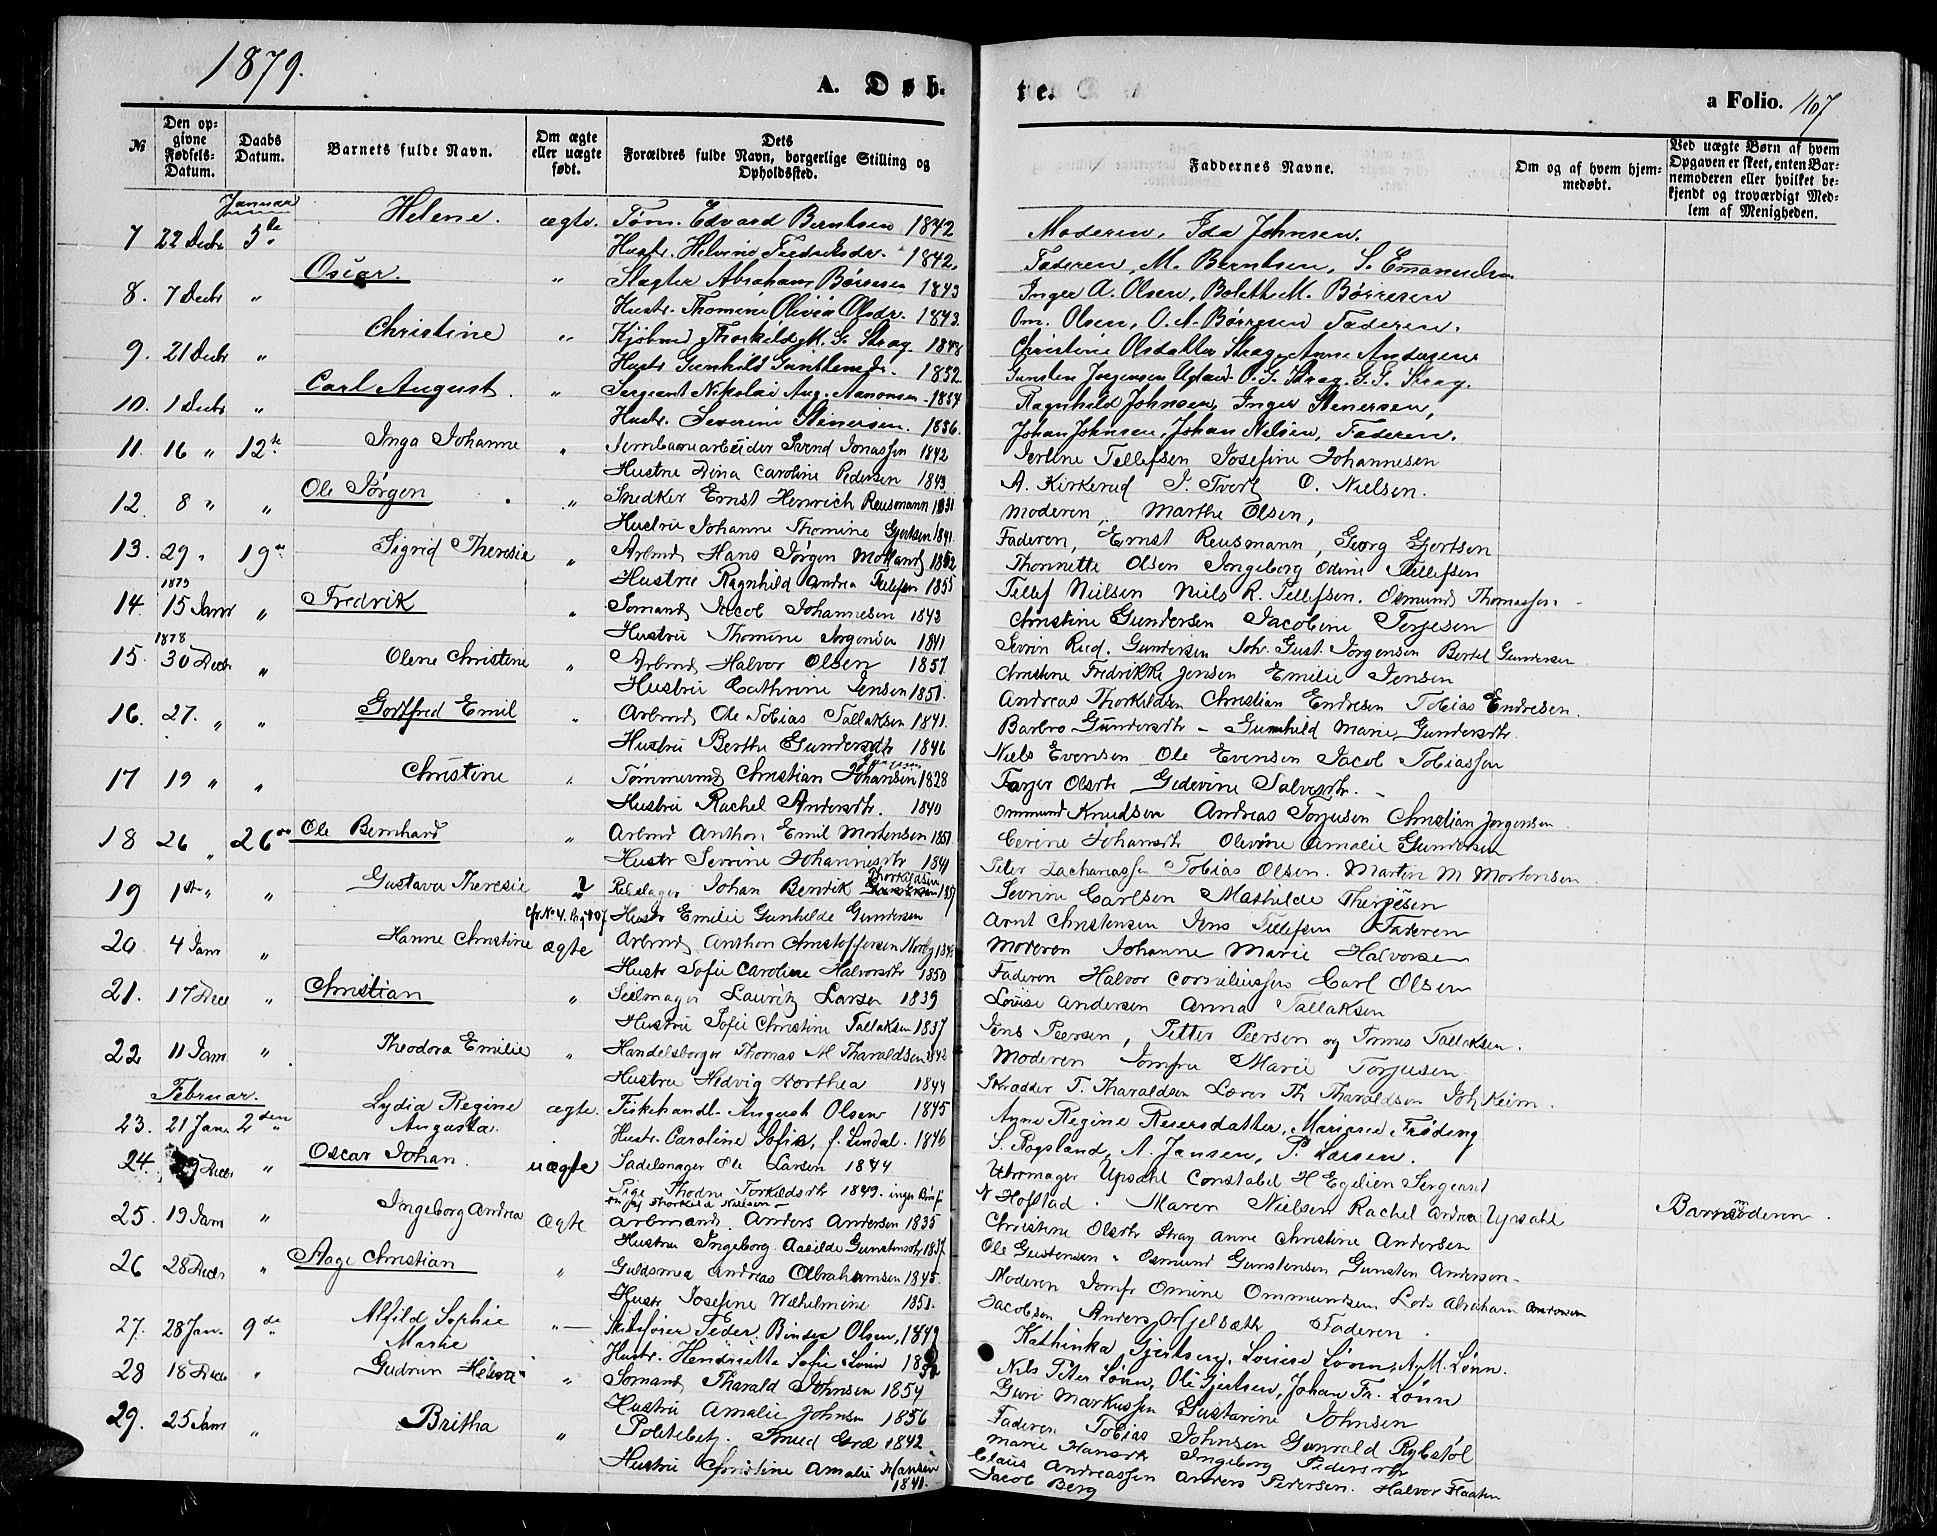 1879.
A. Døb-
№
Den op-
givne
Fødsels-
Datum.
Daabs
Datum.
Barnets fulde Navn.
Om ægte
eller uægte
født.
Dets
Forældres fulde Navn, borgerlige Stilling og
Opholdssted.
Januar
Helene. ægte. Tøm. Edvard Berntsen 1842
7 22 Decbr 5te
Hustr. Helvine Fredriksdr. 1842.
Oscar. " Slagter Abraham Børresen 1843
8. 7 Decbr "
Hustr. Thomine Olivia Olsdr. 1843.
Christine " Kjøbmd Thorkild M. G. Stray 1848
9. 21 Decbr "
Hustr Gunhild 1852
Carl August. " Sergeant Nikolai Aug. Aanonsen
10. 1 Decbr "
Hustr. Severine Stenersen. 1856.
11. 16 " 12te Inga Johanne " Jernbanearbeider Svend Jonassen 1842
Hustru Dina Caroline Pedersen 1843
12. 8 " " Ole Jørgen " Snedker Ernst Henrich Reusmann 1831
Hustru Johanne Thomine Gjertsen 1841
13. 29 " 19de Sigrid Theresie " Arbmd Hans Jørgen Molland 1852
Hustru Ragnhild Andrea Tellefsen 1855
1879
14 15 Janr " Fredrik " Sømand Jacob Johannesen 1843
Hustru Thomine Jørgensen 1841
1878
15. 30 Decbr " Olene Christine " Arbmd Halvor Olsen 1851
Hustru Cathrine Jensen 1851.
16. 27. " " Gottfred Emil " Arbmd Ole Tobias Tallaksen 1841.
Hustru Berthe Gundersdtr 1846
17 19 " " Christine " Tømmermd Christian Johansen 1828
Hustru Rachel Andersdtr. 1840
18 26 " 26de Ole Bernhard " Arbmd Anthon Emil Mortensen 1851
Hustr Sevrine Johannesdtr 1841
19 1st " " Gustava Theresie ? Rebslager Johan Bendik Thorkildsen
cfr. No 4. Hustr Emilie Gunhilde Gundersen
20. 4 Jan " Hanne Christine ægte Arbmd Anthon Christoffersen
Hustr Sofie Caroline Halvorsdtr 1850
21. 17 Dec " Christian " Seilmager Lauritz Larsen 1839
Hustru Sofie Christine Tallaksen 1837
22 11 Jan " Theodora Emilie " Handelsborger Thomas M Tharaldsen 1842
Hustru Hedvig Dorthea 1844
Februar.
23. 21 Jan. 2den Lydia Regine Augusta. ægte. Fiskehandl. August Olsen 1845
Hustr. Caroline Sofie, f. Lindal. 1846
24. 29 Decbr " Oscar Johan. uægte Sadelmager Ole Larsen 1844
Pige Thodne Torkildsdtr 1849.
25. 19 Jan " Ingeborg Andrea ægte arbmand. Anders Andersen 1835
Hustru Ingeborg Aasilde Gunstensdtr 1837.
26 28 Decbr " Aage Christian " Guldsmed Andreas Abrahamsen 1845.
Hustr Josefine Wilhelmine 1851.
27. 28 Jan. 9de Alfild Sophie Marie " Skibsfører Peder Binder Olsen, 1849
Hustr. Henriette Sofie Lønn
28 18 Dec " Gudrun Helena " Sømand Tharald Johnsen 1854
Hustru Amalie Johnsen 1856
29. 25 Jan " Britha " Politibetj. Knud Græ 1842
Hustru Christine Amalie Hansen
1841.
te.
a Folio. 107
Faddernes Navne.
Om og af hvem hjem-
medøbt.
Ved uægte Børn af hvem
Opgaven er skeet, enten Bar-
nemoderen eller hvilket be-
kjendt og troværdigt Med-
lem af Menigheden.
Moderen, Ida Johnsen.
Faderen, M. Berntsen, S. Emanuelsen
Inger A. Olsen, Bolethe M. Børresen
Om. Olsen, O. A. Børresen Faderen.
Christine Olsdatter Stray, Anne Andersen
Gunsten Jørgensen Ugland. O. G. Stray. G. G. Stray.
Ragnhild Johnsen, Inger Stenersen,
Johan Johnsen, Johan Nilsen, Faderen.
Tellefsen Josefine Johannesen
A. Kirkerud O. Nielsen.
Moderen, Marthe Olsen,
Faderen, Ernst Reusmann, Georg Gjertsen
Thonnette Olsen Ingeborg Odine Tellefsen
Tellef Nielsen Niels R. Tellefsen. Osmund Thomassen
Christine Gundersen Jacobine Terjesen
Sevrin Rud. Gundersen Joh. Gust. Jørgensen Bertel Gundersen
Christine Fredrikke Jensen Emilie Jensen
Andreas Thorkildsen Christian Endresen Tobias Endresen.
Barbro Gundersdtr - Gunhild Marie Gundersdtr.
Niels Evensen Ole Evensen Jacob Tobiassen
Torjer Olsdtr Gedevine Salvesdtr.
Ommund Knudsen Andreas Torjusen Christian Jørgensen
Cerine Johansdtr Olevine Amalie Gundersen
Peter Zachariassen Tobias Olsen. Martin M Mortensen
Sevrine Carlsen Mathilde Therjesen
Arnt Christensen Jens Tellefsen Faderen
Moderen Johanne Marie Halvorsen
Faderen Halvor Corneliussen Carl Olsen
Louise Andersen Anna Tallaksen
Jens Peersen, Petter Peersen og Tormes Tallaksen.
Moderen Jomfru Marie Torjusen
Skrædder T. Tharaldsen Lærer Th Tharaldsen Joh Keim.
Anne Regine Reiersdatter, Mariane Frøding
S. Rogsland, A. Jansen, P. Larsen.
Uhrmager Upsahl Constabel H Egelien Sergeant
N Hofstad. Maren Nielsen Rachel Andrea Upsahl Barnemoderen.
Christine Olsdtr Stray Anne Christine Andersen
Ole Gunstensen Osmund Gunstensen Gunsten Andersen
Moderen Jomfr Omine Ommundsen Lods Abraham Andersen
Jacobsen Anders Hjelseth Faderen.
Kathinka Gjertsen, Louise Lønn, A. M. Lønn.
Nils Peter Lønn, Ole Gjertsen, Johan Fr. Lønn
Guri Markussen Gustavine Johnsen
Faderen Tobias Johnsen Gunvald Rybstøl
Marie Hansdtr Ingeborg Pedersdtr
Claus Andreassen Anders Pedersen. Halvor Flaaten
Jacob Berg